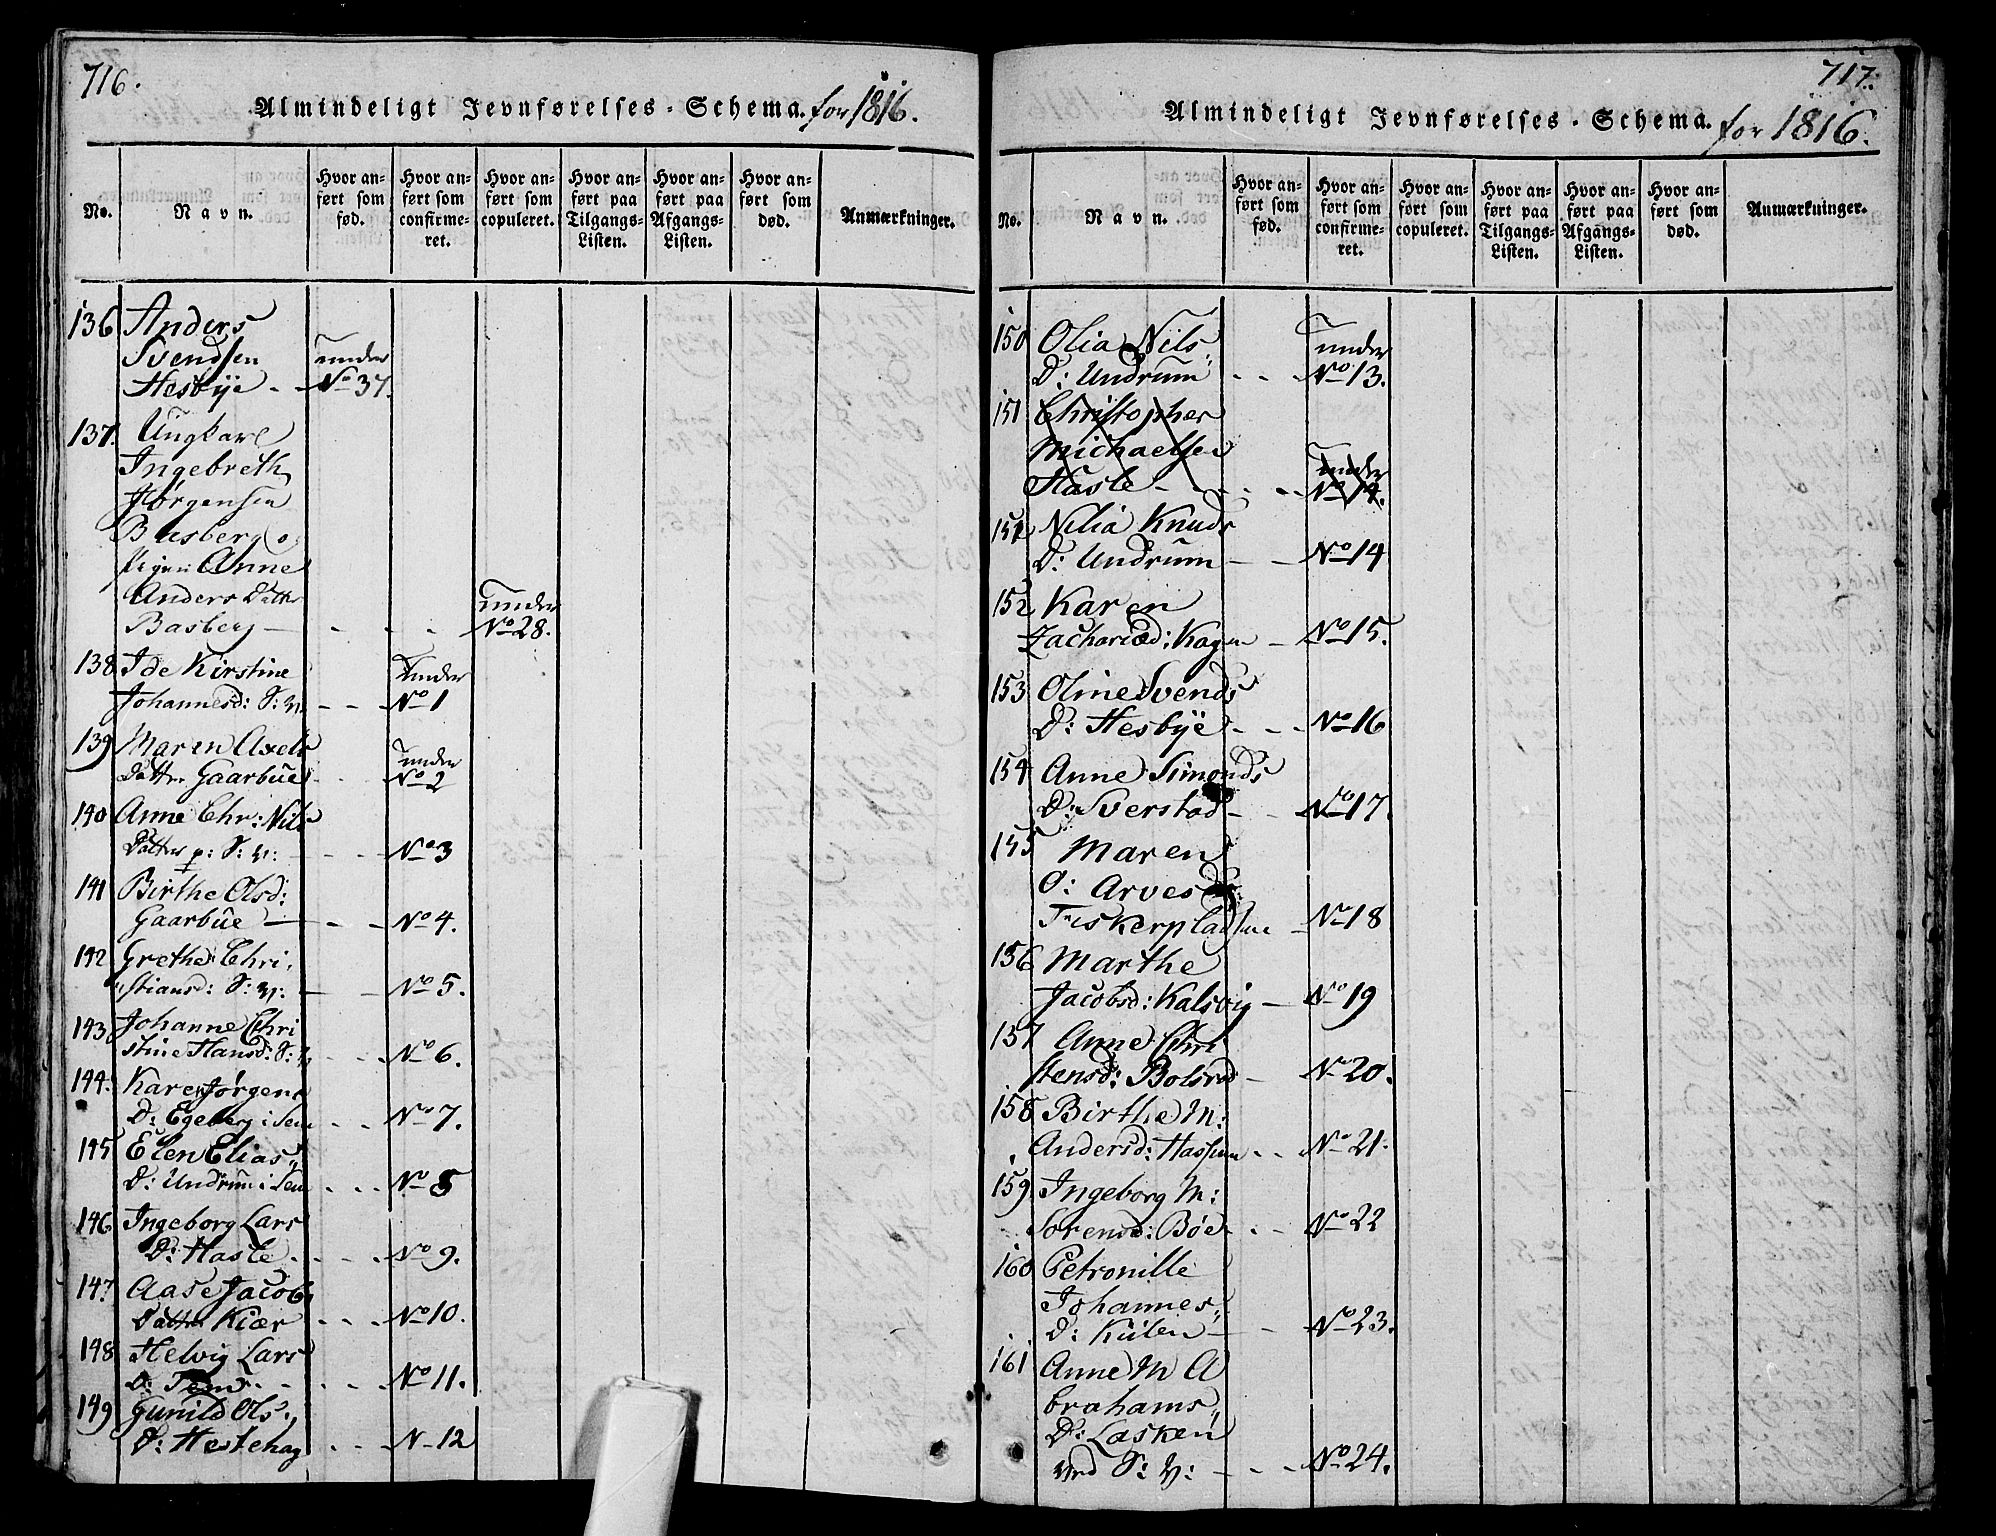 716.
Almindeligt Jevnførelses-Schema. for 1816.
No.
Navn.
Hvor anført som fød.
Hvor anført som confirmeret.
Hvor anført som copuleret.
Hvor anført paa Tilgangs-Listen.
Hvor anført paa Afgangs-Listen.
Hvor anført som død.
Anmærkninger.
136 Anders
Svendsen under
Hesbye - - No 37.
137. Ungkarl
Ingebreth
Jørgensen
Basberg o
Pigen Anne
Anders Datter under
Basberg - - - No 28.
138 Ide Kirstine under
Johannesd: S: V. - - No 1
139 Maren Axels under
Datter Gaarbue - - No 2
140 Anne Chr: Nils
Datter p: S: V: - - - No 3
141 Birthe Olsd:
Gaarbue - - - No 4.
142 Grethe Chri
stiansd: S: V: - - No 5.
143 Johanne Chri
stine Hansd: S: V - - No 6.
144. Karen Jørgens
D: Egeberg i Sem - - No 7.
145 Elen Elias
D: Undrum i Sem - - - No 8
146 Ingeborg Lars
D: Hasle - - - No 9.
147 Aase Jacobs
Datter Kiær - - - No 10.
148 Helvig Lars
D: Sem - - - - No 11.
149 Gunild Ols
D: Hestehag - - N- 12
717.
Almindeligt Jevnførelses-Schema. for 1816.
No.
Navn.
Hvor anført som fød.
Hvor anført som confirmeret.
Hvor anført som copuleret.
Hvor anført paa Tilgangs-Listen.
Hvor anført paa Afgangs-Listen.
Hvor anført som død.
Anmærkninger.
150 Olia Nils under
D: Undrum - - No 13.
151 Christopher
Michaelsen under
Hasle - - - - No 14.
151 Nilia Knuds
D: Undrum - - No 14
152 Karen
Zachariæd: Kagen - No 15.
153 Oline Svends
D: Hesbye - - - No 16
154 Anne Simonds
D: Sverstad - - No 17.
155 Maren
O: Arvesd
Fiskerpladsen - No 18
156 Marthe
Jacobsd: Kalsvig - No 19
157 Anne Chri
stensd: Bolsrød - No 20.
158 Birthe M:
Andersd: Hassum - - No 21.
159 Ingeborg M:
Sorensd: Bøe - - No 22
160 Petronille
Johannes
D: Kulen - - No 23.
161 Anne M A
brahams
D: Lasken
ved S: V: - - - No 24.